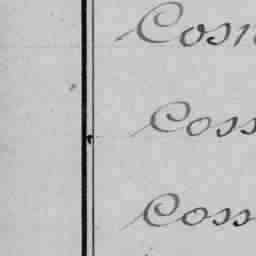 Cosm
Coss
Coss